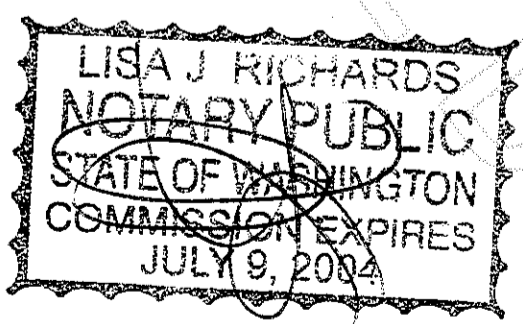 LISA J RICHARDS
NOTARY PUBLIC
STATE OF WASHINGTON
COMMISSION EXPIRES
JULY 9, 2004